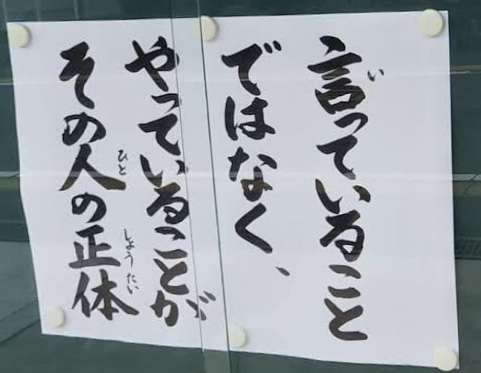 言っていること
ではなく、
やっていることが
その人の正体
い
ひと
しょうたい